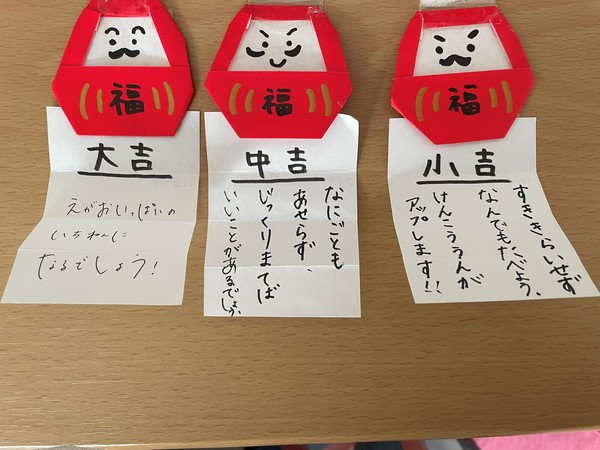 福
大吉
えがおいっぱいの
いちねんに
なるでしょう!
福
中吉
なにごとも
あせらず、
じっくりまてば
いいことがあるでしょう。
福
小吉
すききらいせず
なんでもたべよう。
けんこううんが
アップします!!